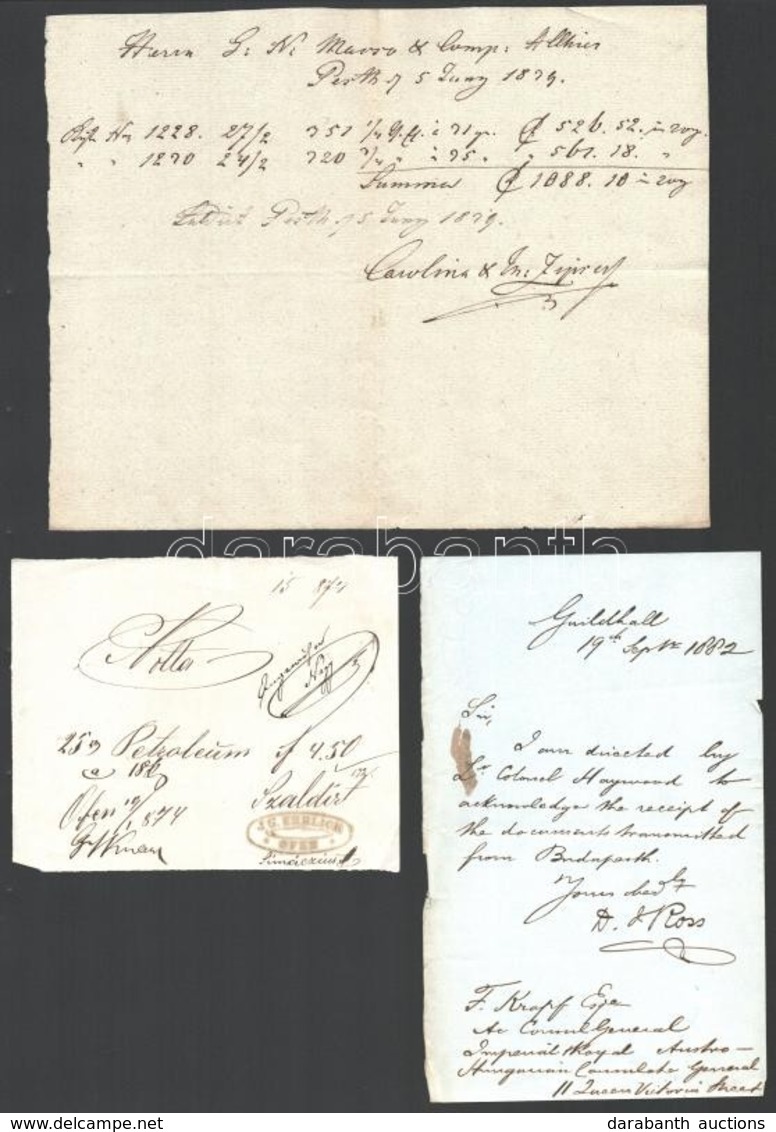 Herrn S: N: Mavro & Comp: Allhier
Pesth 5 Juny 1839.
No 1228. 27/2 351 ƒ 526. 52.
" " 1230 24/2 320 " à 35 " " 561. 18. "
Summa ƒ 1088. 10
Saldirt Pesth 5 Juny 1839.
Carolina &
darabanth
15 874
Notta
25 Petroleum f 4.50
a 18
Ofen 19/1 874
Szaldirt
J.G. EHRLICH
OFEN
Guildhall
19th Septr 1882
Sir,
I am directed by
Lt Colonel Haywood to
acknowledge the receipt of
the documents transmitted
from Budapesth.
Yours obedtly
D. J Ross
F. Krapf Esqe
Ac Consul General
Imperial & Royal Austro-
Hungarian Consulate General
11 Queen Victoria Street
darabanth auctions